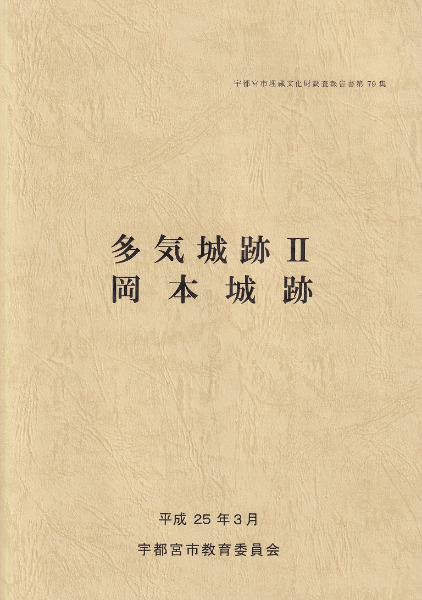 宇都宮市埋蔵文化財調査報告書第79集
多気城跡Ⅱ
岡本城跡
平成25年3月
宇都宮市教育委員会